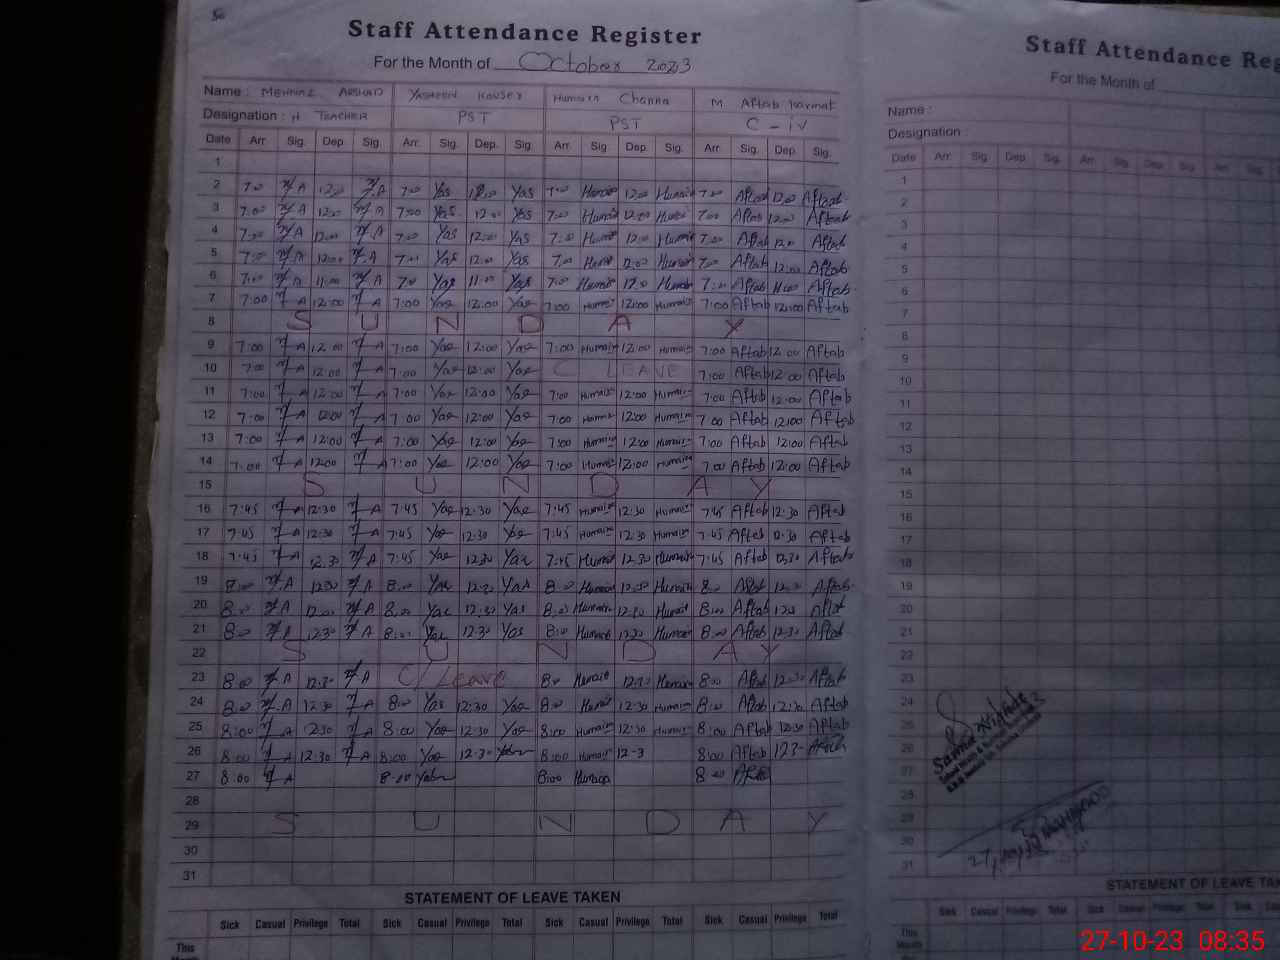 Staff Attendance Register
For the Month of October 2023
Name : MEHNAZ ARSHAD YASMEEN KOUSER Humaira Channa M Aftab
Designation : H TEACHER PST PST C - iv
Date Arr. Sig. Dep. Sig. Arr. Sig. Dep. Sig. Arr. Sig. Dep. Sig. Arr. Sig. Dep. Sig.
1
2 7:00 A 12:00 A 7:00 Yas 12:00 Yas 7:00 Humair 12:00 Humair 7:00 Aftab 12:00 Aftab
3 7:00 A 12:00 A 7:00 Yas 12:00 Yas 7:00 Humair 12:00 Humair 7:00 Aftab 12:00 Aftab
4 7:00 A 12:00 A 7:00 Yas 12:00 Yas 7:00 Humair 12:00 Humair 7:00 Aftab 12:00 Aftab
5 7:00 A 12:00 A 7:00 Yas 12:00 Yas 7:00 12:00 7:00 Aftab 12:00 Aftab
6 7:00 A 11:00 A 7:00 Yas 11:00 Yas 7:00 7:00 Aftab 11:00 Aftab
7 7:00 A 12:00 A 7:00 Yas 12:00 Yas 7:00 Humair 12:00 Humair 7:00 Aftab 12:00 Aftab
8 S U N D A Y
9 7:00 A 12:00 A 7:00 Yas 12:00 Yas 7:00 Humair 12:00 Humair 7:00 Aftab 12:00 Aftab
10 7:00 A 12:00 A 7:00 Yas 12:00 Yas C LEAVE 7:00 Aftab 12:00 Aftab
11 7:00 A 12:00 A 7:00 Yas 12:00 Yas 7:00 Humair 12:00 Humair 7:00 Aftab 12:00 Aftab
12 7:00 A 12:00 A 7:00 Yas 12:00 Yas 7:00 Humair 12:00 Humair 7:00 Aftab 12:00 Aftab
13 7:00 A 12:00 A 7:00 Yas 12:00 Yas 7:00 Humair 12:00 Humair 7:00 Aftab 12:00 Aftab
14 7:00 A 12:00 A 7:00 Yas 12:00 Yas 7:00 Humair 12:00 Humair 7:00 Aftab 12:00 Aftab
15 S U N D A Y
16 7:45 A 12:30 A 7:45 Yas 12:30 Yas 7:45 Humair 12:30 Humair 7:45 Aftab 12:30 Aftab
17 7:45 A 12:30 A 7:45 Yas 12:30 Yas 7:45 Humair 12:30 Humair 7:45 Aftab 12:30 Aftab
18 7:45 A 12:30 A 7:45 Yas 12:30 Yas 7:45 Humair 12:30 Humair 7:45 Aftab 12:30 Aftab
19 8:00 A 12:30 A 8:00 Yas 12:30 Yas 8:00 Humair 12:30 Humair 8:00 Aftab 12:30 Aftab
20 8:00 A A 8:00 Yas 12:30 Yas 8:00 Humair 12:30 Humair 8:00 Aftab Aftab
21 8:00 A 12:30 A 8:00 Yas 12:30 Yas 8:00 Humair 12:30 Humair 8:00 Aftab 12:30 Aftab
22 S U N D A Y
23 8:00 A 12:30 A C/Leave 8:00 Humair 12:30 Humair 8:00 Aftab 12:30 Aftab
24 8:00 A 12:30 A 8:00 Yas 12:30 Yas 8:00 Humair 12:30 Humair 8:00 Aftab 12:30 Aftab
25 8:00 A 12:30 A 8:00 Yas 12:30 Yas 8:00 Humair 12:30 Humair 8:00 Aftab 12:30 Aftab
26 8:00 A 12:30 A 8:00 Yas 12:30 8:00 Humair 12:3 8:00 Aftab 12:3
27 8:00 A 8:00 8:00 Humaira 8:00
28
29 S U N D A Y
30
31
STATEMENT OF LEAVE TAKEN
Sick Casual Privilege Total Sick Casual Privilege Total Sick Casual Privilege Total Sick Casual Privilege Total
This
Month
Staff Attendance Reg
For the Month of
Name :
Designation :
Date Arr. Sig. Dep. Sig. Arr. Sig. Dep. Sig. Arr. Sig.
1
2
3
4
5
6
7
8
9
10
11
12
13
14
15
16
17
18
19
20
21
22
23
24
25
26
27
28
29
30
31
STATEMENT OF LEAVE TAK
Sick Casual Privilege Total Sick Casual Privilege Total Sick
This
Month
27-10-23 08:35